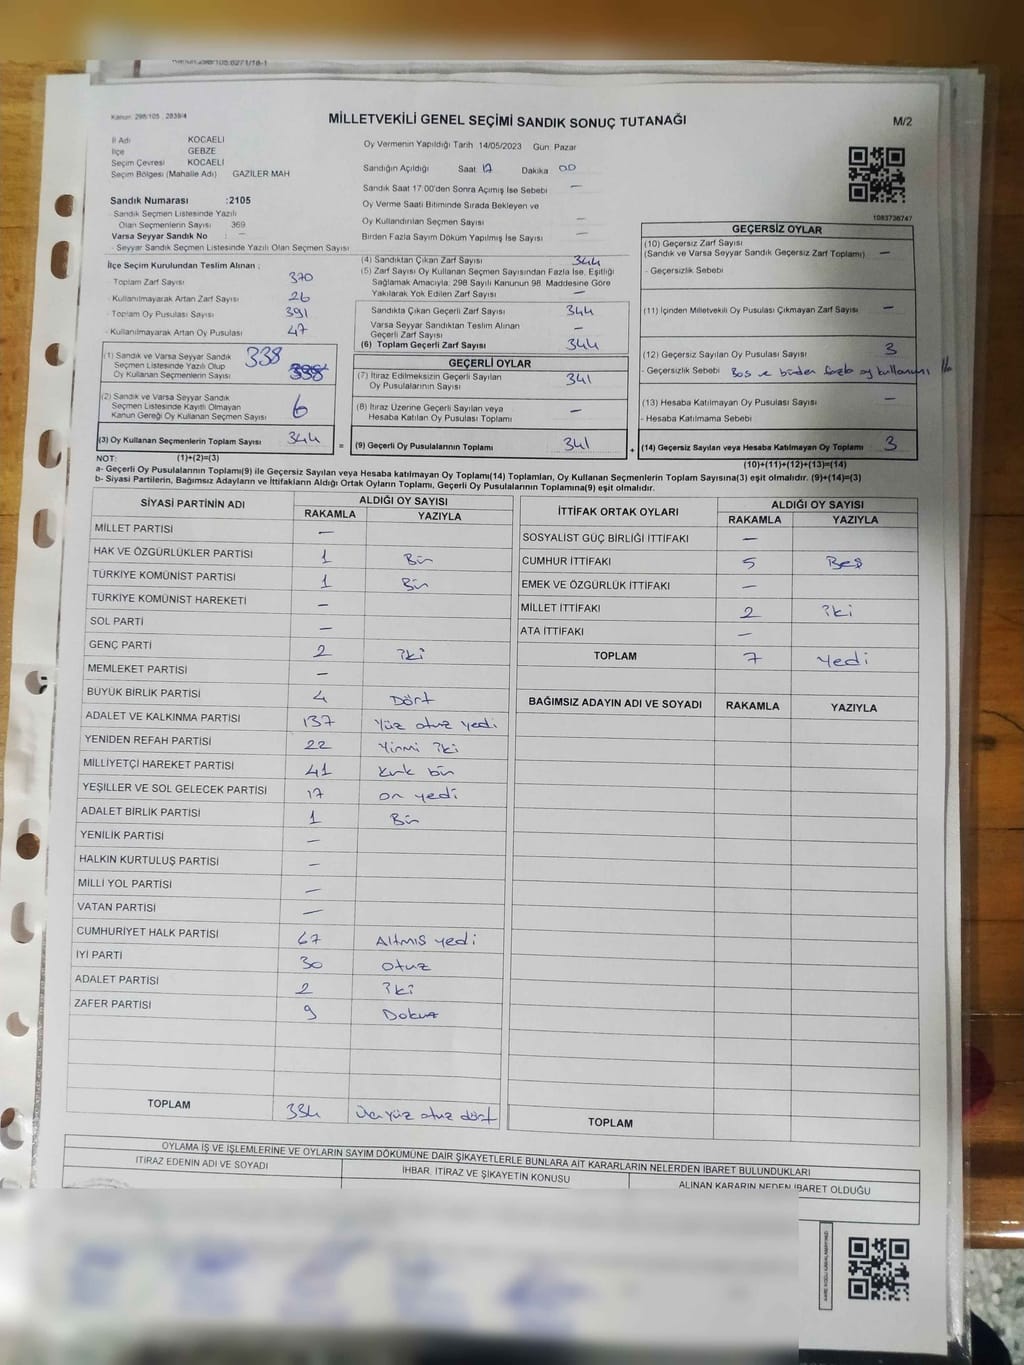 Kanun: 298/105, 2839/4
MİLLETVEKİLİ GENEL SEÇİMİ SANDIK SONUÇ TUTANAĞI
M/2
İl Adı KOCAELİ
İlçe GEBZE
Seçim Çevresi KOCAELİ
Seçim Bölgesi (Mahalle Adı) GAZİLER MAH
Sandık Numarası :2105
- Sandık Seçmen Listesinde Yazılı
Olan Seçmenlerin Sayısı 369
Varsa Seyyar Sandık No : —
- Seyyar Sandık Seçmen Listesinde Yazılı Olan Seçmen Sayısı
Oy Vermenin Yapıldığı Tarih 14/05/2023 Gün Pazar
Sandığın Açıldığı Saat 17 Dakika 00
Sandık Saat 17.00'den Sonra Açımış İse Sebebi —
Oy Verme Saati Bitiminde Sırada Bekleyen ve
Oy Kullandırılan Seçmen Sayısı —
Birden Fazla Sayım Döküm Yapılmış İse Sayısı —
1083738747
İlçe Seçim Kurulundan Teslim Alınan :
- Toplam Zarf Sayısı 370
- Kullanılmayarak Artan Zarf Sayısı 26
- Toplam Oy Pusulası Sayısı 391
- Kullanılmayarak Artan Oy Pusulası 47
(1) Sandık ve Varsa Seyyar Sandık 338
Seçmen Listesinde Yazılı Olup
Oy Kullanan Seçmenlerin Sayısı 338
(2) Sandık ve Varsa Seyyar Sandık
Seçmen Listesinde Kayıtlı Olmayan
Kanun Gereği Oy Kullanan Seçmen Sayısı 6
(3) Oy Kullanan Seçmenlerin Toplam Sayısı 344 =
(4) Sandıktan Çıkan Zarf Sayısı 344
(5) Zarf Sayısı Oy Kullanan Seçmen Sayısından Fazla İse, Eşitliği
Sağlamak Amacıyla; 298 Sayılı Kanunun 98. Maddesine Göre
Yakılarak Yok Edilen Zarf Sayısı —
Sandıkta Çıkan Geçerli Zarf Sayısı 344
Varsa Seyyar Sandıktan Teslim Alınan
Geçerli Zarf Sayısı —
(6) Toplam Geçerli Zarf Sayısı 344
GEÇERLİ OYLAR
(7) İtiraz Edilmeksizin Geçerli Sayılan
Oy Pusulalarının Sayısı 341
(8) İtiraz Üzerine Geçerli Sayılan veya
Hesaba Katılan Oy Pusulası Toplamı —
(9) Geçerli Oy Pusulalarının Toplamı 341 +
GEÇERSİZ OYLAR
(10) Geçersiz Zarf Sayısı
(Sandık ve Varsa Seyyar Sandık Geçersiz Zarf Toplamı) —
- Geçersizlik Sebebi
(11) İçinden Milletvekili Oy Pusulası Çıkmayan Zarf Sayısı —
(12) Geçersiz Sayılan Oy Pusulası Sayısı 3
- Geçersizlik Sebebi Boş ve birden fazla oy kullanımı
(13) Hesaba Katılmayan Oy Pusulası Sayısı —
- Hesaba Katılmama Sebebi
(14) Geçersiz Sayılan veya Hesaba Katılmayan Oy Toplamı 3
NOT: (1)+(2)=(3) (10)+(11)+(12)+(13)=(14)
a- Geçerli Oy Pusulalarının Toplamı(9) ile Geçersiz Sayılan veya Hesaba katılmayan Oy Toplamı(14) Toplamları, Oy Kullanan Seçmenlerin Toplam Sayısına(3) eşit olmalıdır. (9)+(14)=(3)
b- Siyasi Partilerin, Bağımsız Adayların ve İttifakların Aldığı Ortak Oyların Toplamı, Geçerli Oy Pusulalarının Toplamına(9) eşit olmalıdır.
SİYASİ PARTİNİN ADI ALDIĞI OY SAYISI
RAKAMLA YAZIYLA
MİLLET PARTİSİ —
HAK VE ÖZGÜRLÜKLER PARTİSİ 1 Bir
TÜRKİYE KOMÜNİST PARTİSİ 1 Bir
TÜRKİYE KOMÜNİST HAREKETİ —
SOL PARTİ —
GENÇ PARTİ 2 iki
MEMLEKET PARTİSİ —
BÜYÜK BİRLİK PARTİSİ 4 Dört
ADALET VE KALKINMA PARTİSİ 137 Yüz otuz yedi
YENİDEN REFAH PARTİSİ 22 Yirmi iki
MİLLİYETÇİ HAREKET PARTİSİ 41 Kırk bir
YEŞİLLER VE SOL GELECEK PARTİSİ 17 on yedi
ADALET BİRLİK PARTİSİ 1 Bir
YENİLİK PARTİSİ —
HALKIN KURTULUŞ PARTİSİ —
MİLLİ YOL PARTİSİ —
VATAN PARTİSİ —
CUMHURİYET HALK PARTİSİ 67 Altmış yedi
İYİ PARTİ 30 otuz
ADALET PARTİSİ 2 iki
ZAFER PARTİSİ 9 Dokuz
TOPLAM 334 Üçyüz otuz dört
İTTİFAK ORTAK OYLARI ALDIĞI OY SAYISI
RAKAMLA YAZIYLA
SOSYALİST GÜÇ BİRLİĞİ İTTİFAKI —
CUMHUR İTTİFAKI 5 Beş
EMEK VE ÖZGÜRLÜK İTTİFAKI —
MİLLET İTTİFAKI 2 iki
ATA İTTİFAKI —
TOPLAM 7 Yedi
BAĞIMSIZ ADAYIN ADI VE SOYADI RAKAMLA YAZIYLA
TOPLAM
OYLAMA İŞ VE İŞLEMLERİNE VE OYLARIN SAYIM DÖKÜMÜNE DAİR ŞİKAYETLERLE BUNLARA AİT KARARLARIN NELERDEN İBARET BULUNDUKLARI
İTİRAZ EDENİN ADI VE SOYADI İHBAR, İTİRAZ VE ŞİKAYETİN KONUSU ALINAN KARARIN NEDEN İBARET OLDUĞU